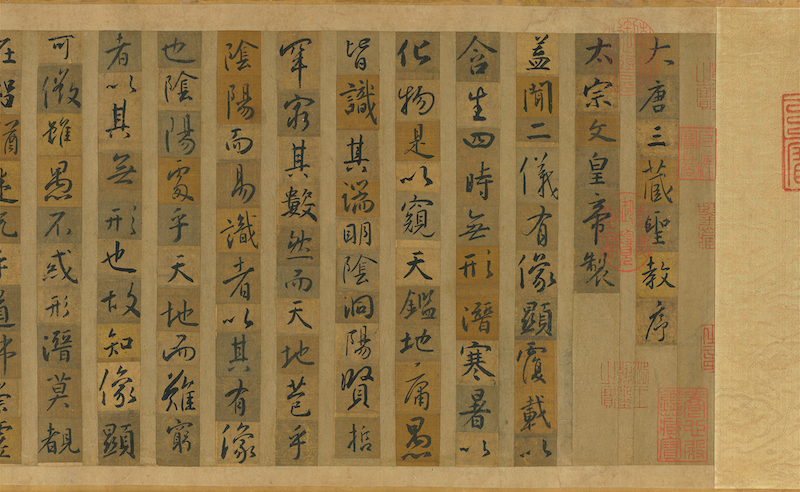 大唐三藏聖教序
太宗文皇帝製
蓋聞二儀有像顯覆載以
含生四時無形潛寒暑以
化物是以窺天鑑地庸愚
皆識其端明陰洞陽賢哲
罕窮其數然而天地苞乎
陰陽而易識者以其有像
也陰陽處乎天地而難窮
者以其無形也故知像顯
可徵雖愚不惑形潛莫覩
在智猶迷况乎道崇虛